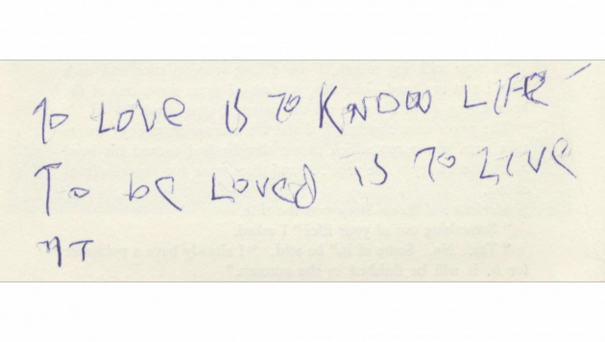 To LOVe IS TO KNOW LIFe -
To be LOVed IS TO LIVe
IT